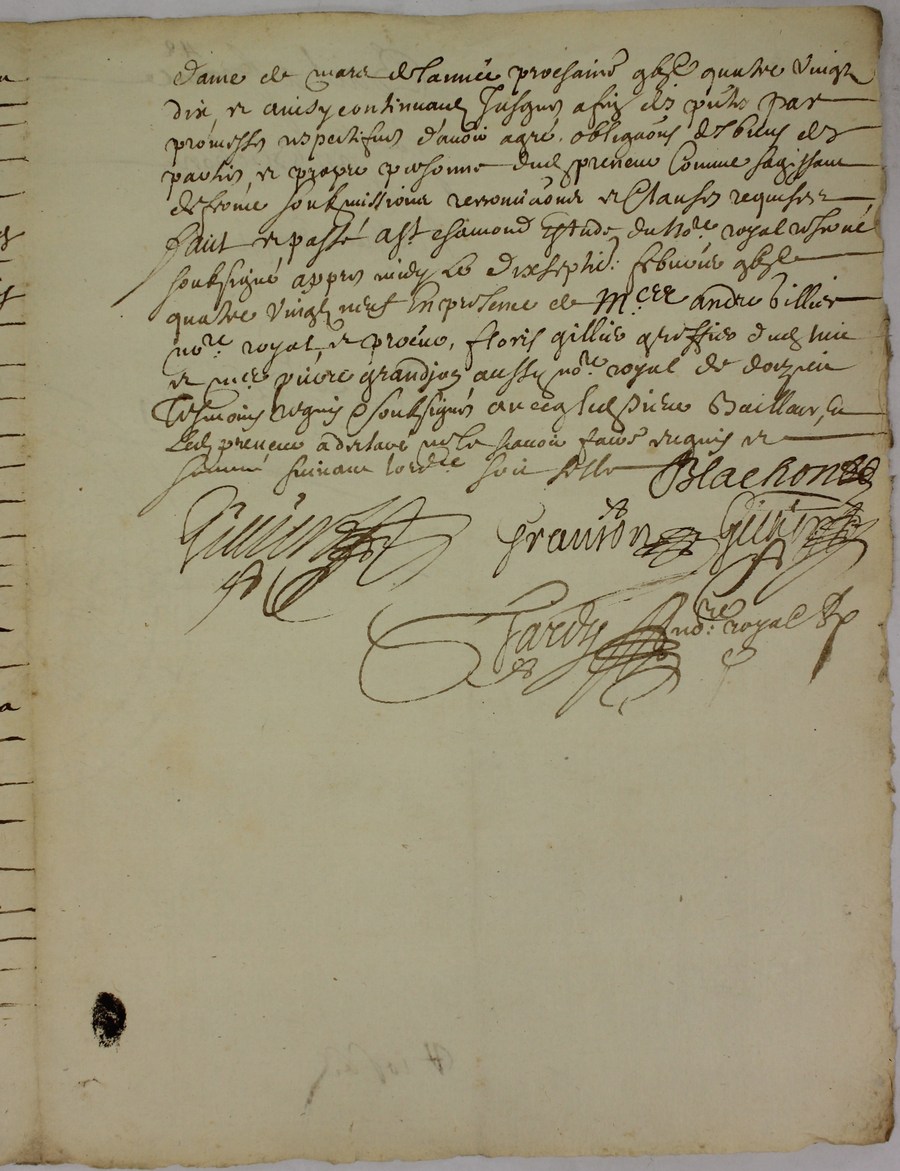 dame de mars de lannée prochaine gbjc quatre vingt
dix, et ainsy continuant jusques a fin des pntes par
promesses respectifves d'avoir agré, obligaōns des biens des
parties et propre personne dud preneur comme sagissant
de ferme soubmissions renonciaōns et clauses requises
faict et passé a St chamond estude du nore royal reservé
soubsigné appres midy le dixseptie: febvrier gbjc
quatre vingt neuf en presence de Mcre andre gillier
nore royal et procur, floris gillier greffier dud lieu
et mcre pierre grandjon aussy nore royal de doizieu
tesmoins requis & soubsignés avec led sieur bailleur, et
led preneur a declaré ne le scavoir faire enquis et
sommé suivant lordce soit
Blachon
Gillier Gillier
Tardy nore royal